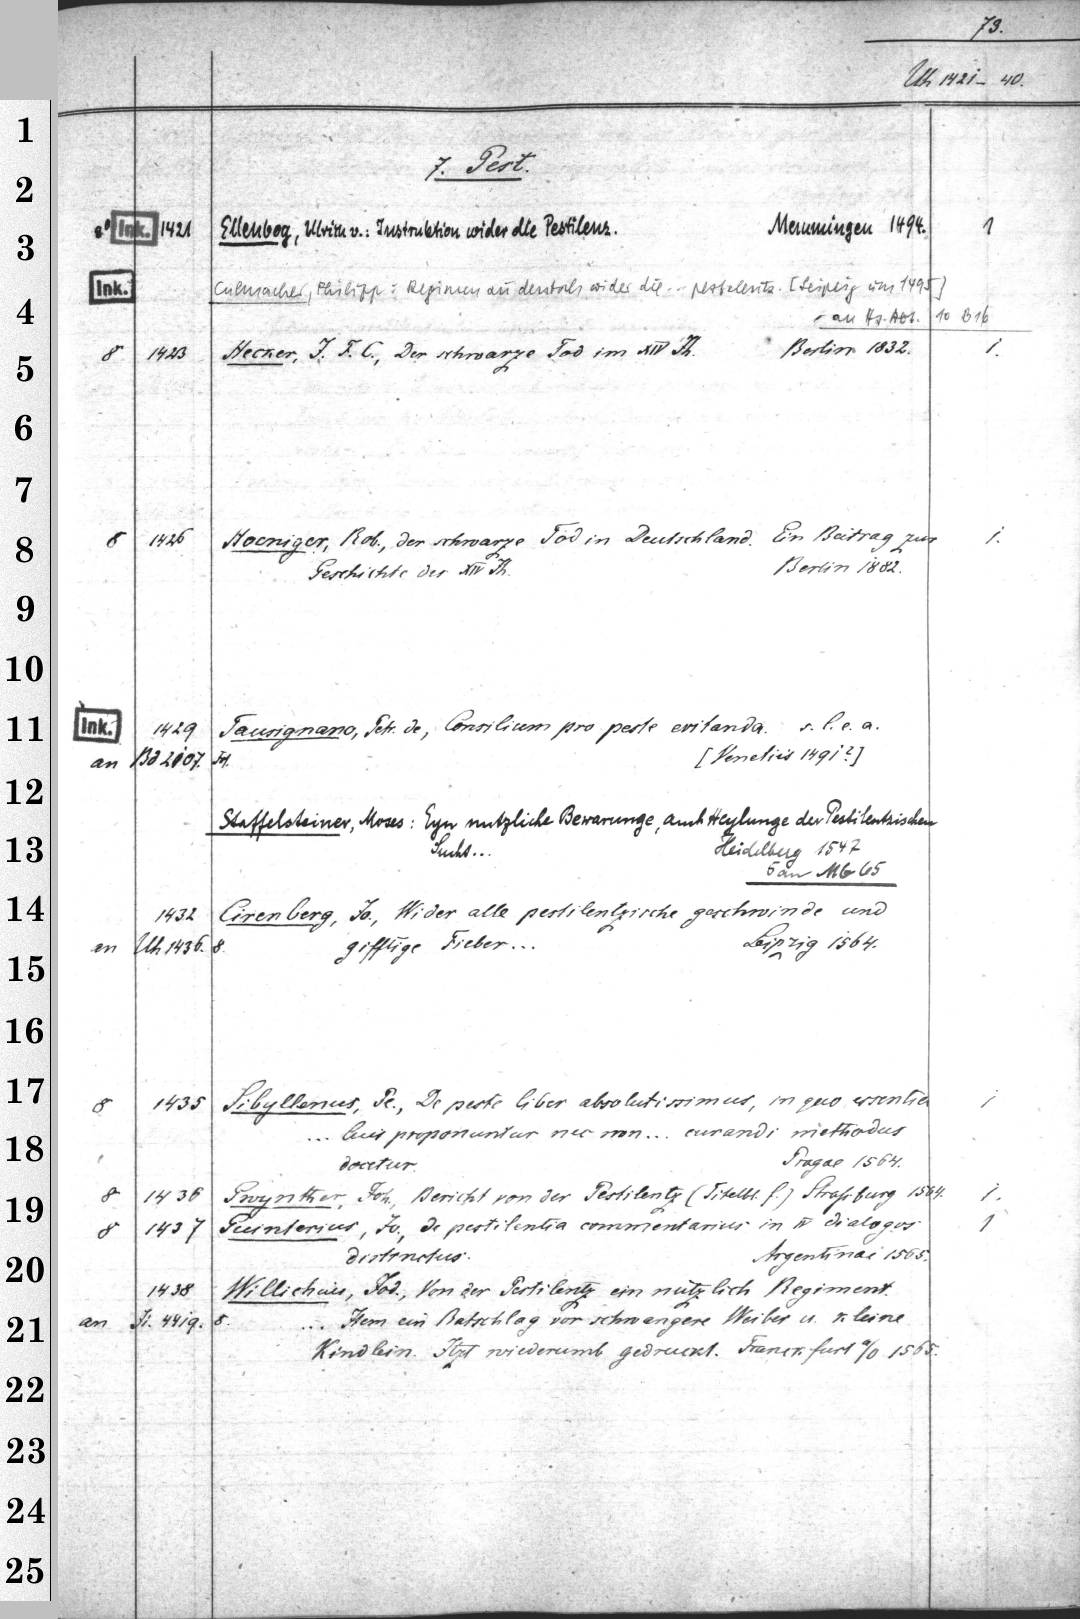 73.
Uh 1421- 40.
7. Pest.
8° Ink. 1421 Ellenbog, Ulrich v.: Instruktion wider die Pestilenz. Memmingen 1494. 1
Ink. Culmacher, Philipp: Regimen zu deutsch wider die... pestelentz. [Leipzig um 1495]
an Hs. Abt. 10 B 16
8 1423 Hecker, J. F. C., Der schwarze Tod im XIV Jh. Berlin 1832. 1.
8 1426 Hoeniger, Rob., der schwarze Tod in Deutschland. Ein Beitrag zur 1.
Geschichte des XIV Jh. Berlin 1882.
Ink. 1429 Tausignano, Petr. de, Consilium pro peste evitanda. s. l. e. a.
an Bd 2107. [Venetiis 1491?]
Staffelsteiner, Moses: Eyn nutzliche Bewarunge, auch Heylunge der Pestilentzischen
Sucht... Heidelberg 1547
5 an Mb 65
1432 Cirenberg, Jo., Wider alle pestilentzische geschwinde und
an Uh 1436. 8. gifftige Fieber... Leipzig 1564.
8 1435 Sibyllenus, Pe., De peste liber absolutissimus, in quo essentia 1
... luis proponuntur nec non... curandi methodus
docetur. Pragae 1564.
8 1436 Gwynther, Joh., Bericht von der Pestilentz (Titelbl. f.) Straßburg 1564. 1.
8 1437 Guinterius, Jo., de pestilentia commentarius in IV dialogos 1
distinctus. Argentinae 1565.
1438 Willichius, Jod., Von der Pestilentz ein nützlich Regiment.
an Ji. 4419. 8. ... Item ein Ratschlag vor schwangere Weiber u. kleine
Kindlein. Itzt wiederumb gedruckt. Franckfurt a/O 1565.
1
2
3
4
5
6
7
8
9
10
11
12
13
14
15
16
17
18
19
20
21
22
23
24
25